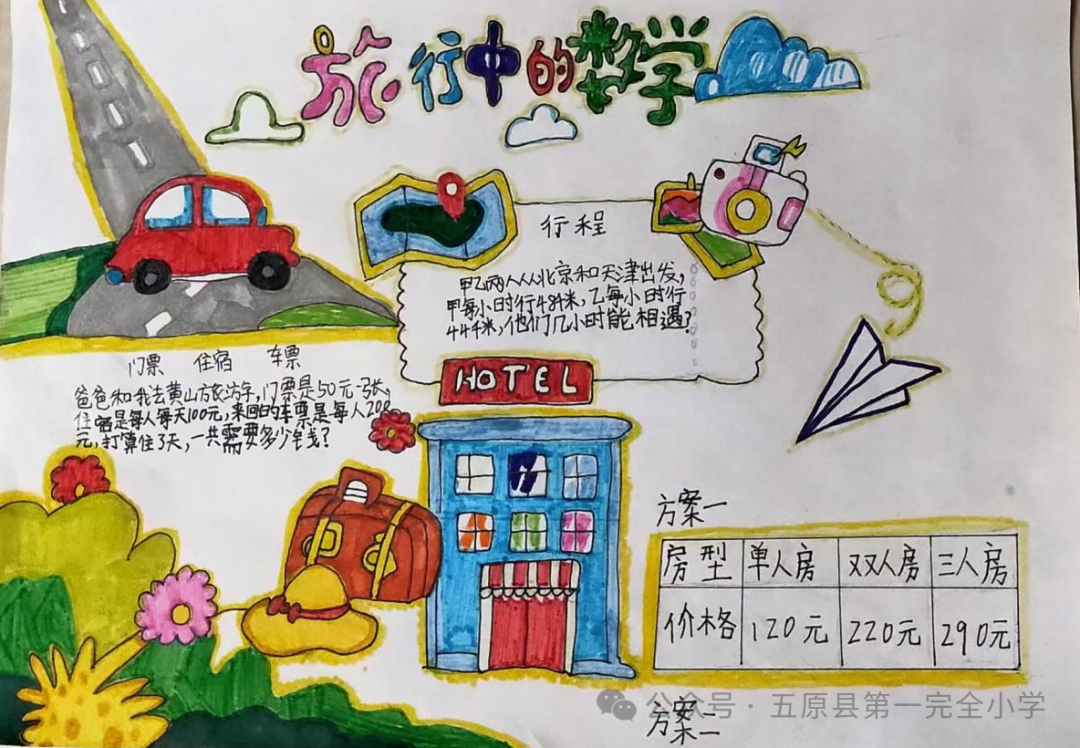 旅行中的数学
行程
甲乙两人从北京和天津出发,
甲每小时行48千米,乙每小时行
44千米,他们几小时能相遇?
HOTEL
门票 住宿 车票
爸爸和我去黄山旅游,门票是50元一张,
住宿是每人每天100元,来回的车票是每人208
元,打算住3天,一共需要多少钱?
方案一
房型 单人房 双人房 三人房
价格 120元 220元 290元
方案二
公众号·五原县第一完全小学